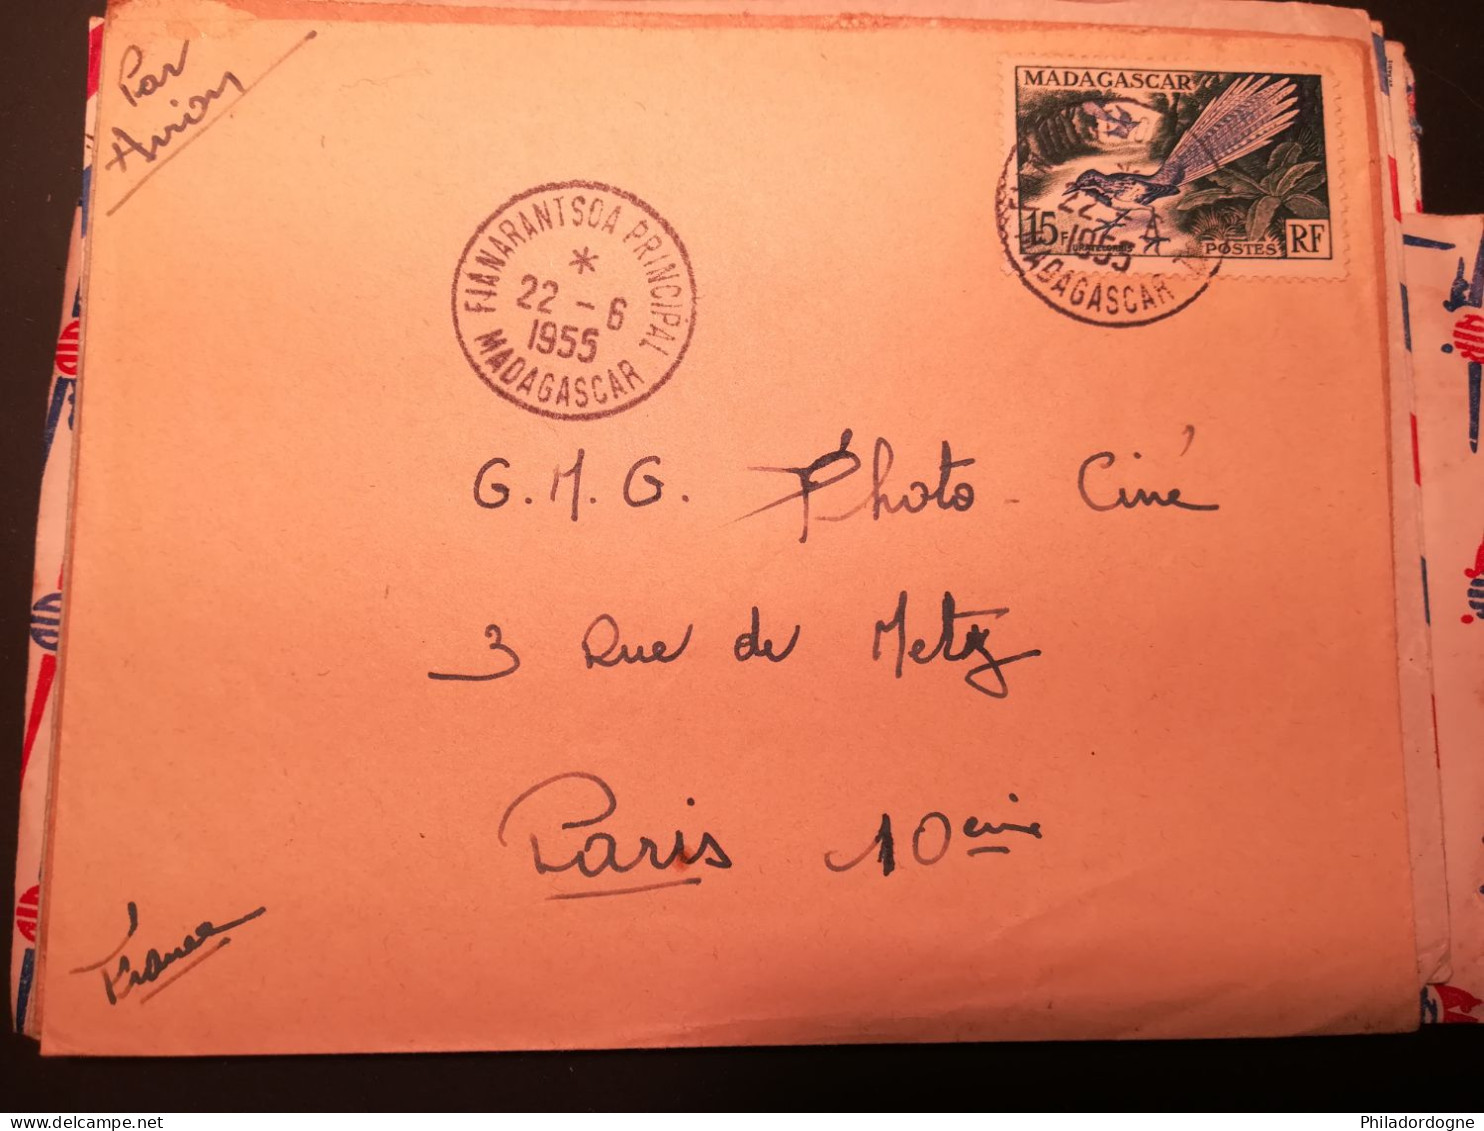 Par
Avion
MADAGASCAR
15F
POSTES RF
22-6
1955
MADAGASCAR
FIANARANTSOA PRINCIPAL
*
22-6
1955
MADAGASCAR
G.M.G. Photo-Ciné
3 Rue de Metz
Paris 10eme
France
Philadordogne